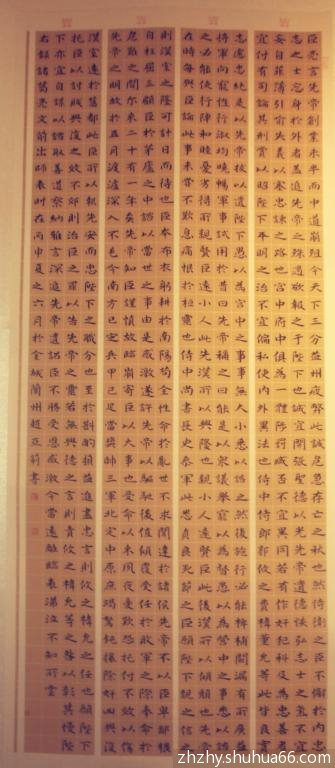 臣亮言先帝創業未半而中道崩殂今天下三分益州疲弊此誠危急存亡之秋也然侍衛之臣不懈於內忠
志之士忘身於外者蓋追先帝之殊遇欲報之于陛下也誠宜開張聖德以光先帝遺德恢弘志士之氣不宜
妄自菲薄引喻失義以塞忠諫之路也宮中府中俱為一體陟罰臧否不宜異同若有作奸犯科及為忠善者
宜付有司論其刑賞以昭陛下平明之治不宜偏私使內外異法也侍中侍郎郭攸之費禕董允等此皆良實
志慮忠純是以先帝拔以遺陛下愚以為宮中之事事無大小悉以諮之然後施行必能裨補闕漏有所廣益
將軍向寵性行淑均曉暢軍事試用於昔日先帝稱之曰能是以眾議舉寵為督愚以為營中之事悉以諮
之必能使行陣和睦優劣得所親賢臣遠小人此先漢所以興隆也親小人遠賢臣此後漢所以傾頹也先帝在
時每與臣論此事未嘗不歎息痛恨於桓靈也侍中尚書長史參軍此悉貞良死節之臣願陛下親之信之
則漢室之隆可計日而待也臣本布衣躬耕於南陽苟全性命於亂世不求聞達於諸侯先帝不以臣卑鄙猥
自枉屈三顧臣於茅廬之中諮以當世之事由是感激遂許先帝以驅馳後值傾覆受任於敗軍之際奉命於
危難之間爾來二十有一年矣先帝知臣謹慎故臨崩寄臣以大事也受命以來夙夜憂歎恐托付不效以傷
先帝之明故於五月渡瀘深入不毛今南方已定兵甲已足當獎帥三軍北定中原庶竭駑鈍攘除奸凶興復
漢室還於舊都此臣所以報先帝而忠陛下之職分也至於斟酌損益進盡忠言則攸之禕允之任也願陛下
托臣以討賊興復之效不效則治臣之罪以告先帝之靈若無興德之言則責攸之禕允等之咎以彰其慢陛
下亦宜自謀以諮諏善道察納雅言深追先帝遺詔臣不勝受恩感激今當遠離臨表涕泣不知所云
右錄諸葛亮文前出師表時在丙申夏之六月於金城蘭州趙亞莉書
zhzhy.shuhua66.com